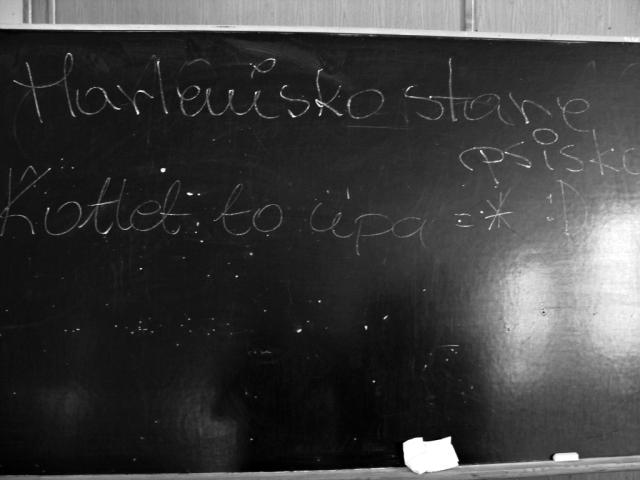 Marlenisko stare
psisko
Kotlet to lipa =* :D